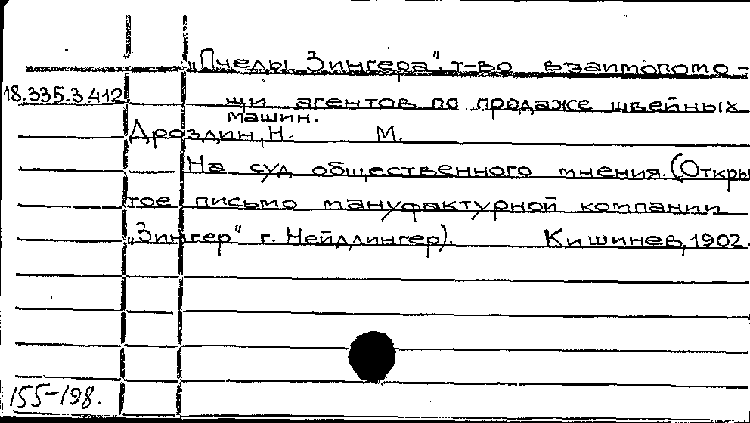 „Пчелы Зингера", т-во взаимопомо-
18.335.3.412
щи агентов по продаже швейных
машин.
Дроздин, Н. М.
На суд общественного мнения. (Откры
тое письмо мануфактурной компании
„Зингер" г. Нейдлингер). Кишинев, 1902.
155-198.